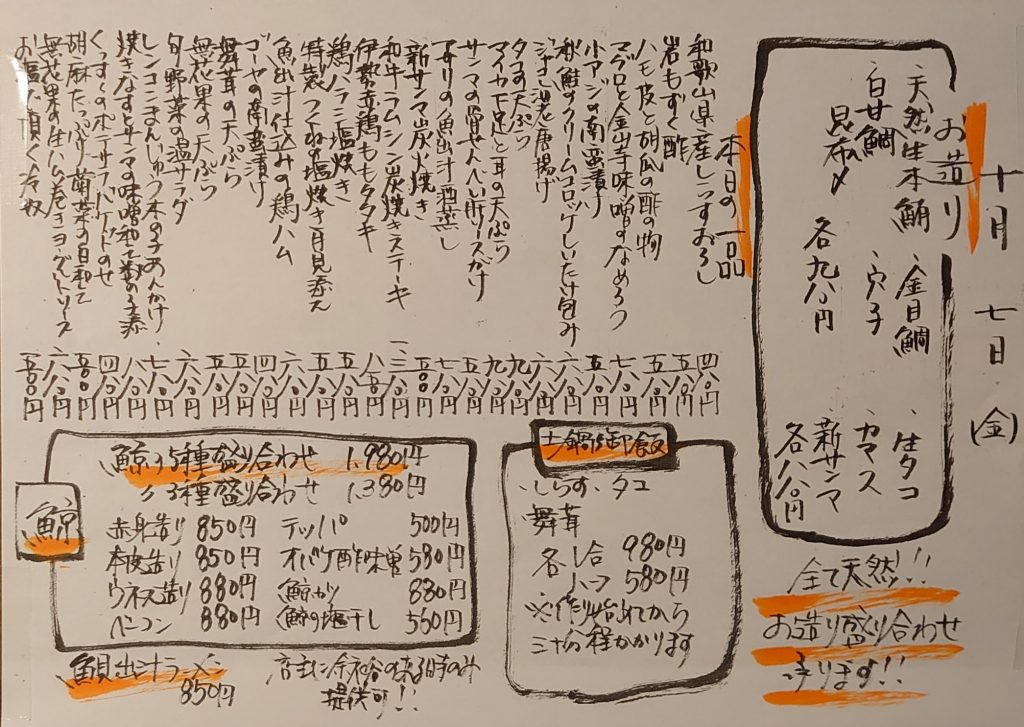 十月 七日 (金)
お造り
天然生本鮪 金目鯛 生タコ
白甘鯛 穴子 カマス
昆布〆 新サンマ
各九八〇円 各八八〇円
全て天然!!
お造り盛り合わせ
承ります!!
本日の一品
和歌山県産しらすおろし 四八〇円
岩もずく酢 五五〇円
ハモ皮と胡瓜の酢の物 五八〇円
マグロと金山寺味噌のなめろう 七八〇円
小アジの南蛮漬け 五八〇円
秋鮭のクリームコロッケしいたけ包み 六八〇円
唐揚げ 六八〇円
タコの天ぷら 九八〇円
マイカ下足と耳の天ぷら 九八〇円
サンマの骨せんべい 五八〇円
アサリの魚出汁酒蒸し 七八〇円
新サンマ炭火焼き 五八〇円
和牛ラムシン炭焼きステーキ 一三八〇円
伊勢赤鶏ももタタキ 八八〇円
鶏ハラミ塩焼き 五八〇円
特製つくねの塩焼き月見添え 五五〇円
魚出汁仕込みの鶏ハム 六八〇円
ゴーヤの南蛮漬け 四八〇円
舞茸の天ぷら 五八〇円
無花果の天ぷら 五八〇円
旬野菜の温サラダ 六八〇円
レンコンまんじゅう木の子あんかけ 七八〇円
焼きなすとサンマの味噌和え 八八〇円
くんすーのポテサラバケットのせ 四八〇円
胡麻たっぷり菊菜の白和え 五八〇円
無花果の生ハム巻きヨーグルトソース 六八〇円
お塩で頂く冷奴 五〇〇円
土鍋御飯
・しらす・タコ
舞茸
各一合 980円
ハーフ 580円
※作り始めてから
三十分程かかります
鯨
鯨の5種盛り合わせ 1,980円
〃 3種盛り合わせ 1,380円
赤身造り 850円 テッパ 500円
本皮造り 850円 オバケ酢味噌 580円
ウネス造り 880円 鯨カツ 880円
ベーコン 880円 鯨の塩干し 560円
鯛出汁ラーメン
850円
店主に余裕の来る時のみ
提供可!!